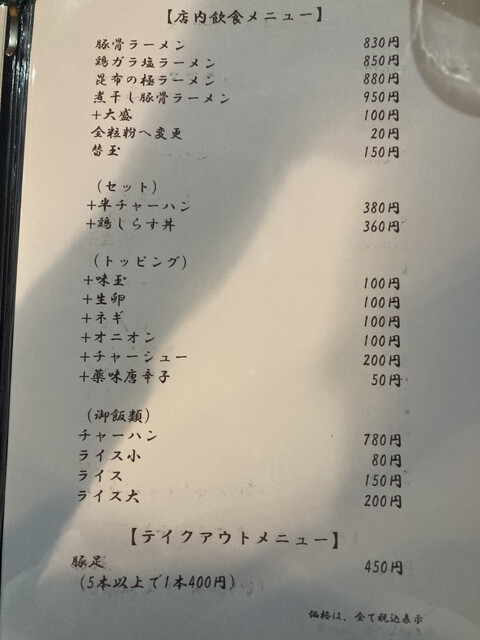 【店内飲食メニュー】
豚骨ラーメン 830円
鶏ガラ塩ラーメン 850円
昆布の極ラーメン 880円
煮干し豚骨ラーメン 950円
+大盛 100円
全粒粉へ変更 20円
替玉 150円
(セット)
+半チャーハン 380円
+鶏しらす丼 360円
(トッピング)
+味玉 100円
+生卵 100円
+ネギ 100円
+オニオン 100円
+チャーシュー 200円
+薬味唐辛子 50円
(御飯類)
チャーハン 780円
ライス小 80円
ライス 150円
ライス大 200円
【テイクアウトメニュー】
豚足 450円
(5本以上で1本400円)
価格は、全て税込表示